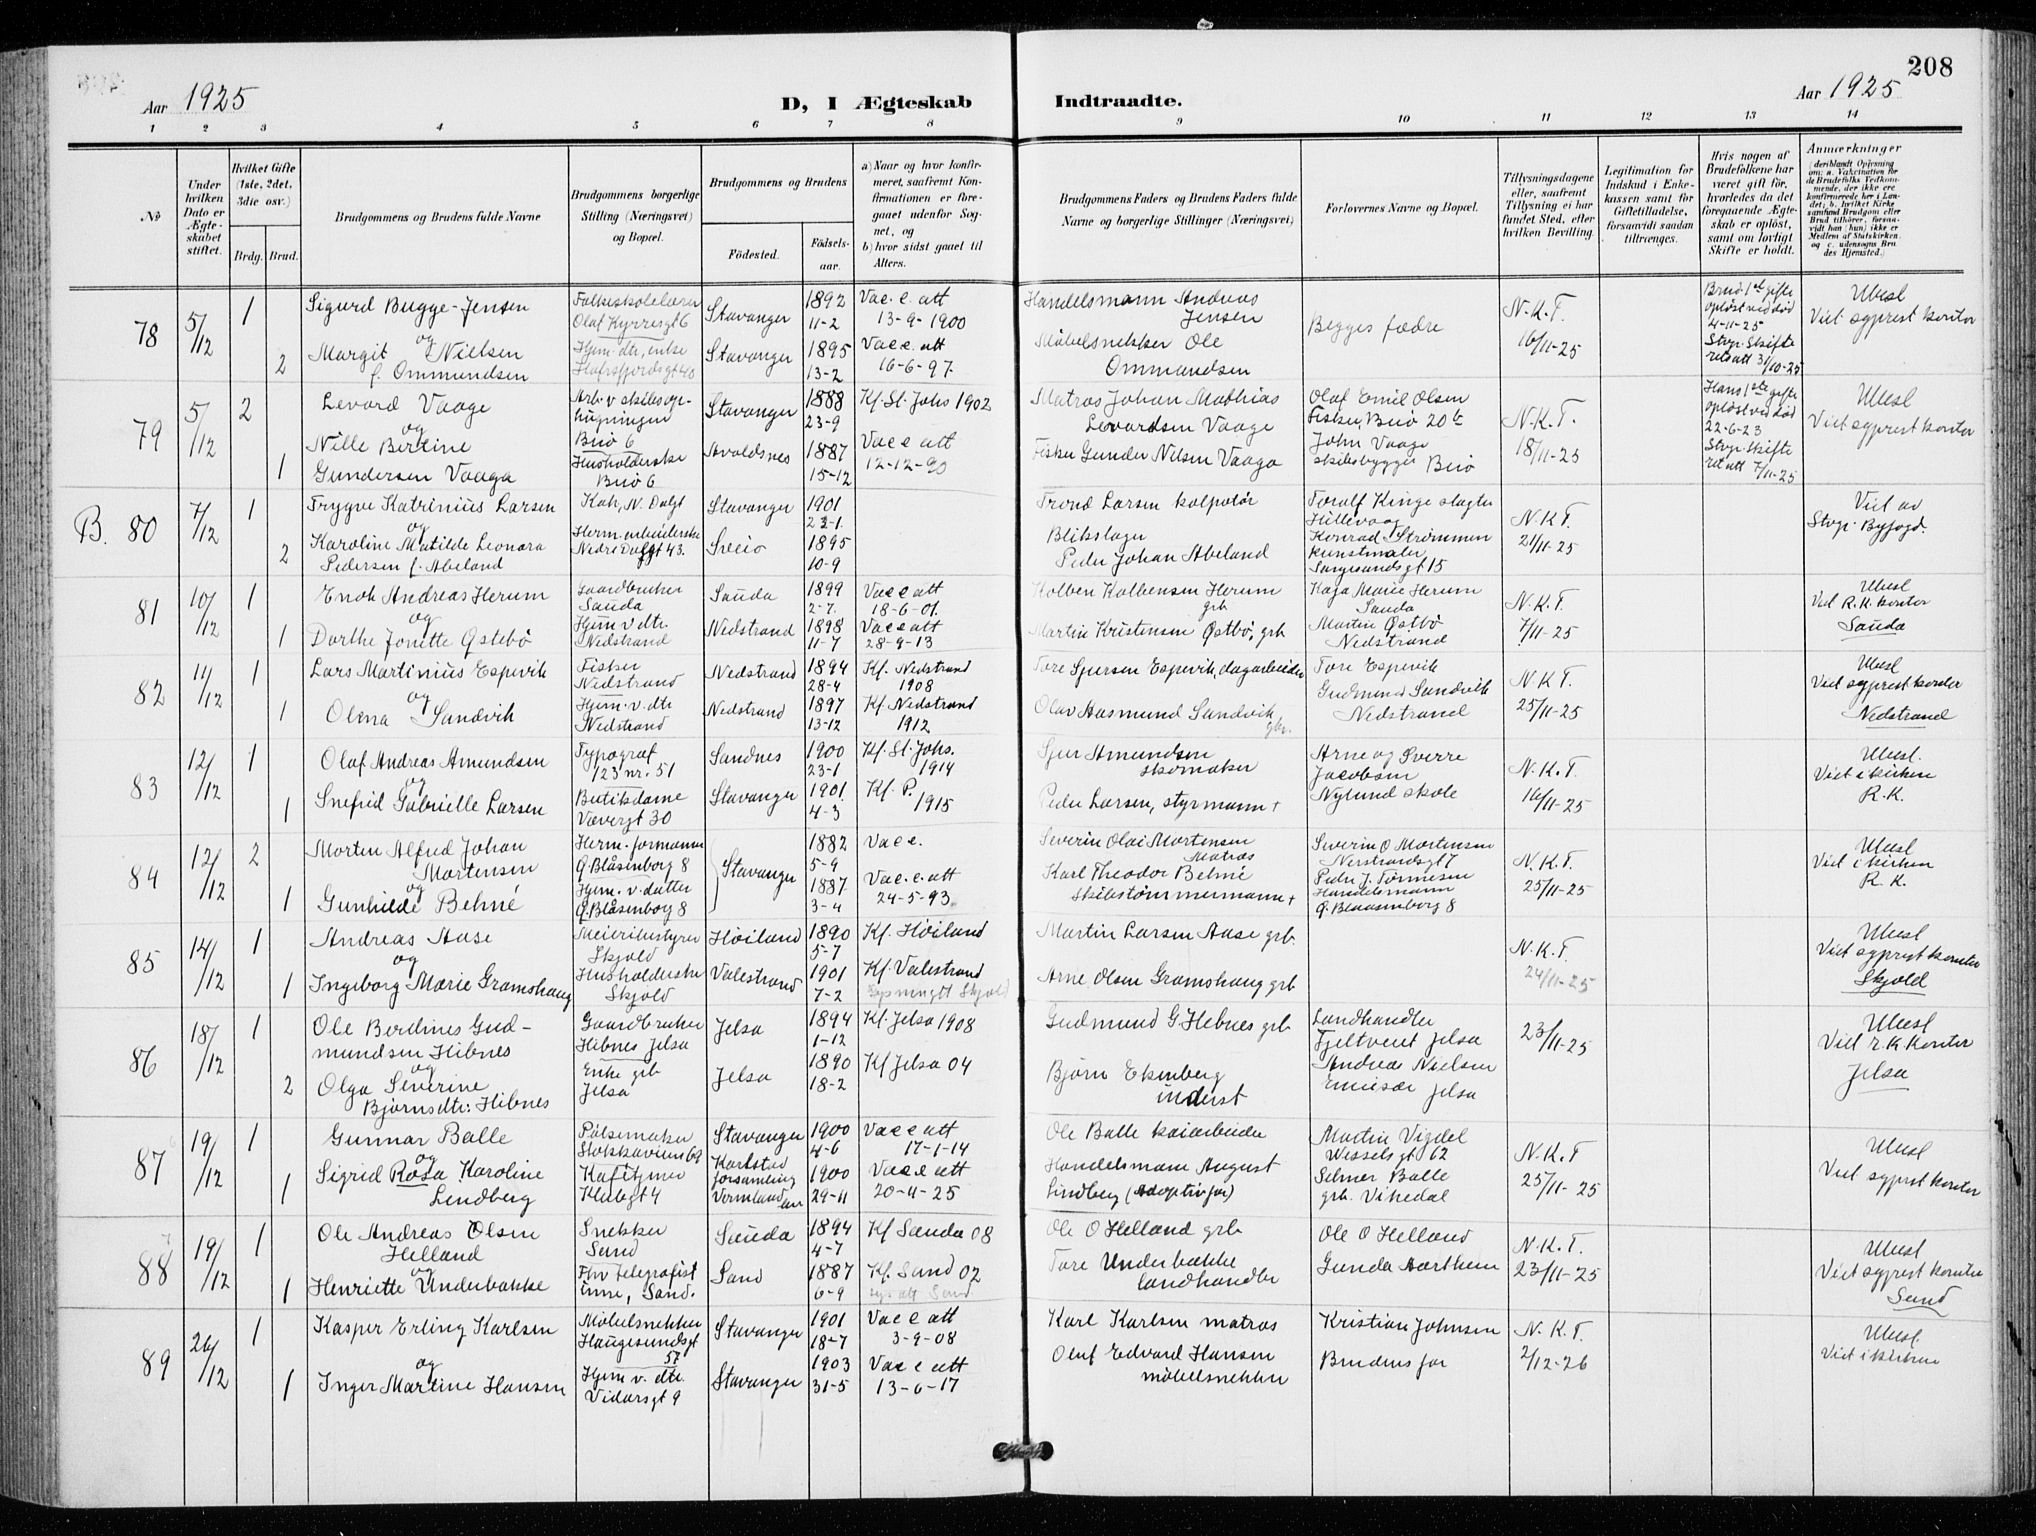 208
Aar 1925
D, I Ægteskab
Indtraadte.
Aar 1925
1 2 3 4 5 6 7 8
9 10 11 12 13 14
No
Under hvilken Dato er Ægteskabet stiftet.
Hvilket Gifte (1ste, 2det, 3die osv.)
Brdg. Brud.
Brudgommens og Brudens fulde Navne
Brudgommens borgerlige Stilling (Næringsvei) og Bopæl.
Brudgommens og Brudens
Fødested.
Fødselsaar.
a) Naar og hvor konfirmeret, saafremt Konfirmationen er foregaaet udenfor Sognet, og
b) hvor sidst gaaet til Alters.
Brudgommens Faders og Brudens Faders fulde Navne og borgerlige Stillinger (Næringsvei)
Forlovernes Navne og Bopæl.
Tillysningsdagene eller, saafremt Tillysning ei har fundet Sted, efter hvilken Bevilling.
Legitimation for Indskud i Enkekassen samt for Giftetilladelse, forsaavidt saadan tiltrænges.
Hvis nogen af Brudefolkene har været gift før, hvorledes da det foregaaende Ægteskab er opløst, samt om lovligt Skifte er holdt.
Anmærkninger
(deriblandt Oplysning om: a. Vakcination for de Brudefolks Vedkommende, der ikke ere konfirmerede her i Landet; b. hvilket Kirkesamfund Brudgom eller Brud tilhører, forsaavidt han (hun) ikke er Medlem af Statskirken. og c. udensogns Brudes Hjemsted.)
78
5/12
1
Sigurd Bugge-Jensen
og
2
Margit Nielsen
f. Ommundsen
Folkeskolelærer
Olaf Kyrresgt 6
Hjem. dtr, enke
Hafrsfjordsgt 40
Stavanger
Stavanger
1892
11-2
1895
13-2
Vac. e. att
13-9-1900
Vac e. att
16-6-97.
Handelsmann Andreas
Jensen
Møbelsnekker Ole
Ommundsen
Begges fædre
N.K.T.
16/11-25
Brud. 1ste gifte
opløst ved død
4-11-25
Stvgr. Skifte
ret att 31/10-25
Ubesl
Viet sgprest kontor
79
5/12
2
Levard Vaage
og
Nille Bertine
1
Gundersen Vaaga
Arb. v skibsop-
hugningen
Buø 6
Husholderske
Buø 6
Stavanger
Avaldsnes
1888
23-9
1887
15-12
Kf. St. Johs 1902
Vac e att
12-12-90
Matros Johan Mathias
Levardsen Vaage
Fisker Gunder Nilsen Vaaga
Olaf Emil Olsen
Fisker, Buø 20b
John Vaage
skibsbygger Buø
N.K.T.
18/11-25
Hans 1ste gifte
opløst ved død
22-6-23
Stvgr. Skifte
ret att 7/11-25
Ubesl
Viet sgprest kontor
B. 80
7/12
1
Trygve Katrinius Larsen
og
2
Karoline Matilde Leonora
Pedersen f. Abeland
Kok, N. Dalgt
Herm. arbeiderske
Nedre Dalgt 43.
Stavanger
Sveio
1901
23-1.
1895
10-9
Trond Larsen kolportør
Blikslager
Peder Johan Abeland
Toralf Kinge slagter
Hillevaag
Konrad Strømmen
kunstmaler
N.K.T.
21/11-25
Viet av
Stvgr. Byfogd.
81
10/12
1
Enok Andreas Herum
og
1
Dorthe Jonette Østebø
Gaardbruker
Sauda
Hjem v dtr.
Nedstrand
Sauda
Nedstrand
1899
2-7.
1898
11-7
Vac e att
18-6-01.
Vac e att
28-9-13
Kolben Kolbensen Herum
grb
Martin Kristensen Østbø, grb
Kaja Marie Herum
Sauda
Martin Østbø
Nedstrand
N.K.T.
7/11-25
Ubesl
Viet R.K. kontor
Sauda
82
11/12
1
Lars Martinius Espevik
og
1
Olena Sandvik
Fisker
Nedstrand
Hjem. v. dtr
Nedstrand
Nedstrand
Nedstrand
1894
28-4
1897
13-12
Kf. Nedstrand
1908
Kf Nedstrand
1912
Tore Sjursen Espevik, dagarbeider
Olav Aasmund Sandvik
gbr.
Tore Espevik
Gudmund Sandvik
Nedstrand
N.K.T.
25/11-25
Ubesl
Viet sgprest kontor
Nedstrand
83
12/12
1
Olaf Andreas Amundsen
og
1
Snefrid Gabrielle Larsen
Typograf
123 nr. 51
Butikdame
Vævergt 30
Sandnes
Stavanger
1900
23-1
1901.
4-3
Kf. St. Johs.
1914
Kf. P.
1915
Sjur Amundsen
skomaker
Peder Larsen, styrmann +
Arne og Sverre
Jacobsen
Nylund skole
N.K.T.
14/11-25
Ubesl.
Viet i kirken
R.K.
84
12/12
2
Morten Alfred Johan
Mortensen
og
1
Gunhilde Behné
Herm. formann
Ø. Blåsenborg 8
Hjem. v. datter
Ø. Blåsenborg 8
Stavanger
1882
5-9
1887
3-4
Vac e.
Vac. e att
24-5-93.
Severin Olai Mortensen
Matros
Karl Theodor Behné
skibstømmermann +
Severin O Mortensen
Nerstrandsgt 7
Peder J. Tønnesen
Handelsmann
Ø. Blaasenborg 8
N.K.T.
25/11-25
Ubesl
Viet i kirken
R.K.
85
14/12
1
Andreas Aase
og
1
Ingeborg Marie Gramshaug
Meieribestyrer
Skjold
Husholderske
Skjold
Høiland
Valestrand
1890
5-7
1901
7-2
Kf. Høiland
Kf. Valestrand
Martin Larsen Aase grb.
Arne Olsen Gramshaug grb
N.K.T.
24/11-25
Ubesl
Viet sgprest kontor
Skjold
86
18/12
1
Ole Berdines Gud-
mundsen Hibnes
og
2
Olga Severine
Bjørnsdtr: Hibnes
Gaardbruker
Hibnes Jelsa
Enke grb
Jelsa
Jelsa
Jelsa
1894
1-12
1890
18-2
Kf. Jelsa 1908
Kf Jelsa 04
Gudmund G. Hebnes grb
Bjørn Ekenberg
inderst
Landhandler
Fjeltveit Jelsa
Andrea Nielsen
Emisær Jelsa
23/11-25
Ubesl
Viet r.k kontor
Jelsa
87
19/12
1
Gunnar Balle
og
1
Sigrid Rosa Karoline
Lindberg
Pølsemaker
Stokkaveien 69
Kafétjener
Klubgt 4
Stavanger
Karlstad
forsamling
Vermland
1900
4-6
1900
29-11
Vac e att
17-1-14
Vac e att
20-4-25
Ole Balle kaiarbeider
Handelsmann August
Lindberg (adoptivfar)
Martin Vigdel
Wesselsgt 62
Selmer Balle
grb. Vikedal
N.K.T
25/11-25
Ubesl
Viet sgprest kontor
88
19/12
1
Ole Andreas Olsen
Helland
og
1
Henriette Underbakke
Snekker
Sand
Fhv telegrafist
inne, Sand.
Sauda
Sand
1894
4-7
1887
6-9
Kf Sauda 08
Kf. Sand 02
Ole O Helland grb
Tore Underbakke
landhandler
Ole O Helland
Gunda Aartheim
N.K.T.
23/11-25
Ubesl
Viet sgprest kontor
Sand
89
26/12
1
Kasper Erling Karlsen
og
1
Inger Martine Hansen
Møbelsnekker
Haugesundsgt
57
Hjem v. dtr.
Vidarsgt 9
Stavanger
Stavanger
1901
18-7
1903
31-5
Vac e att
3-9-08
Vac e att
13-6-17
Karl Karlsen matros
Oluf Edvard Hansen
møbelsnekker
Kristian Johnsen
Brudens far
N.K.T.
2/12-26
Ubesl.
Viet i kirken